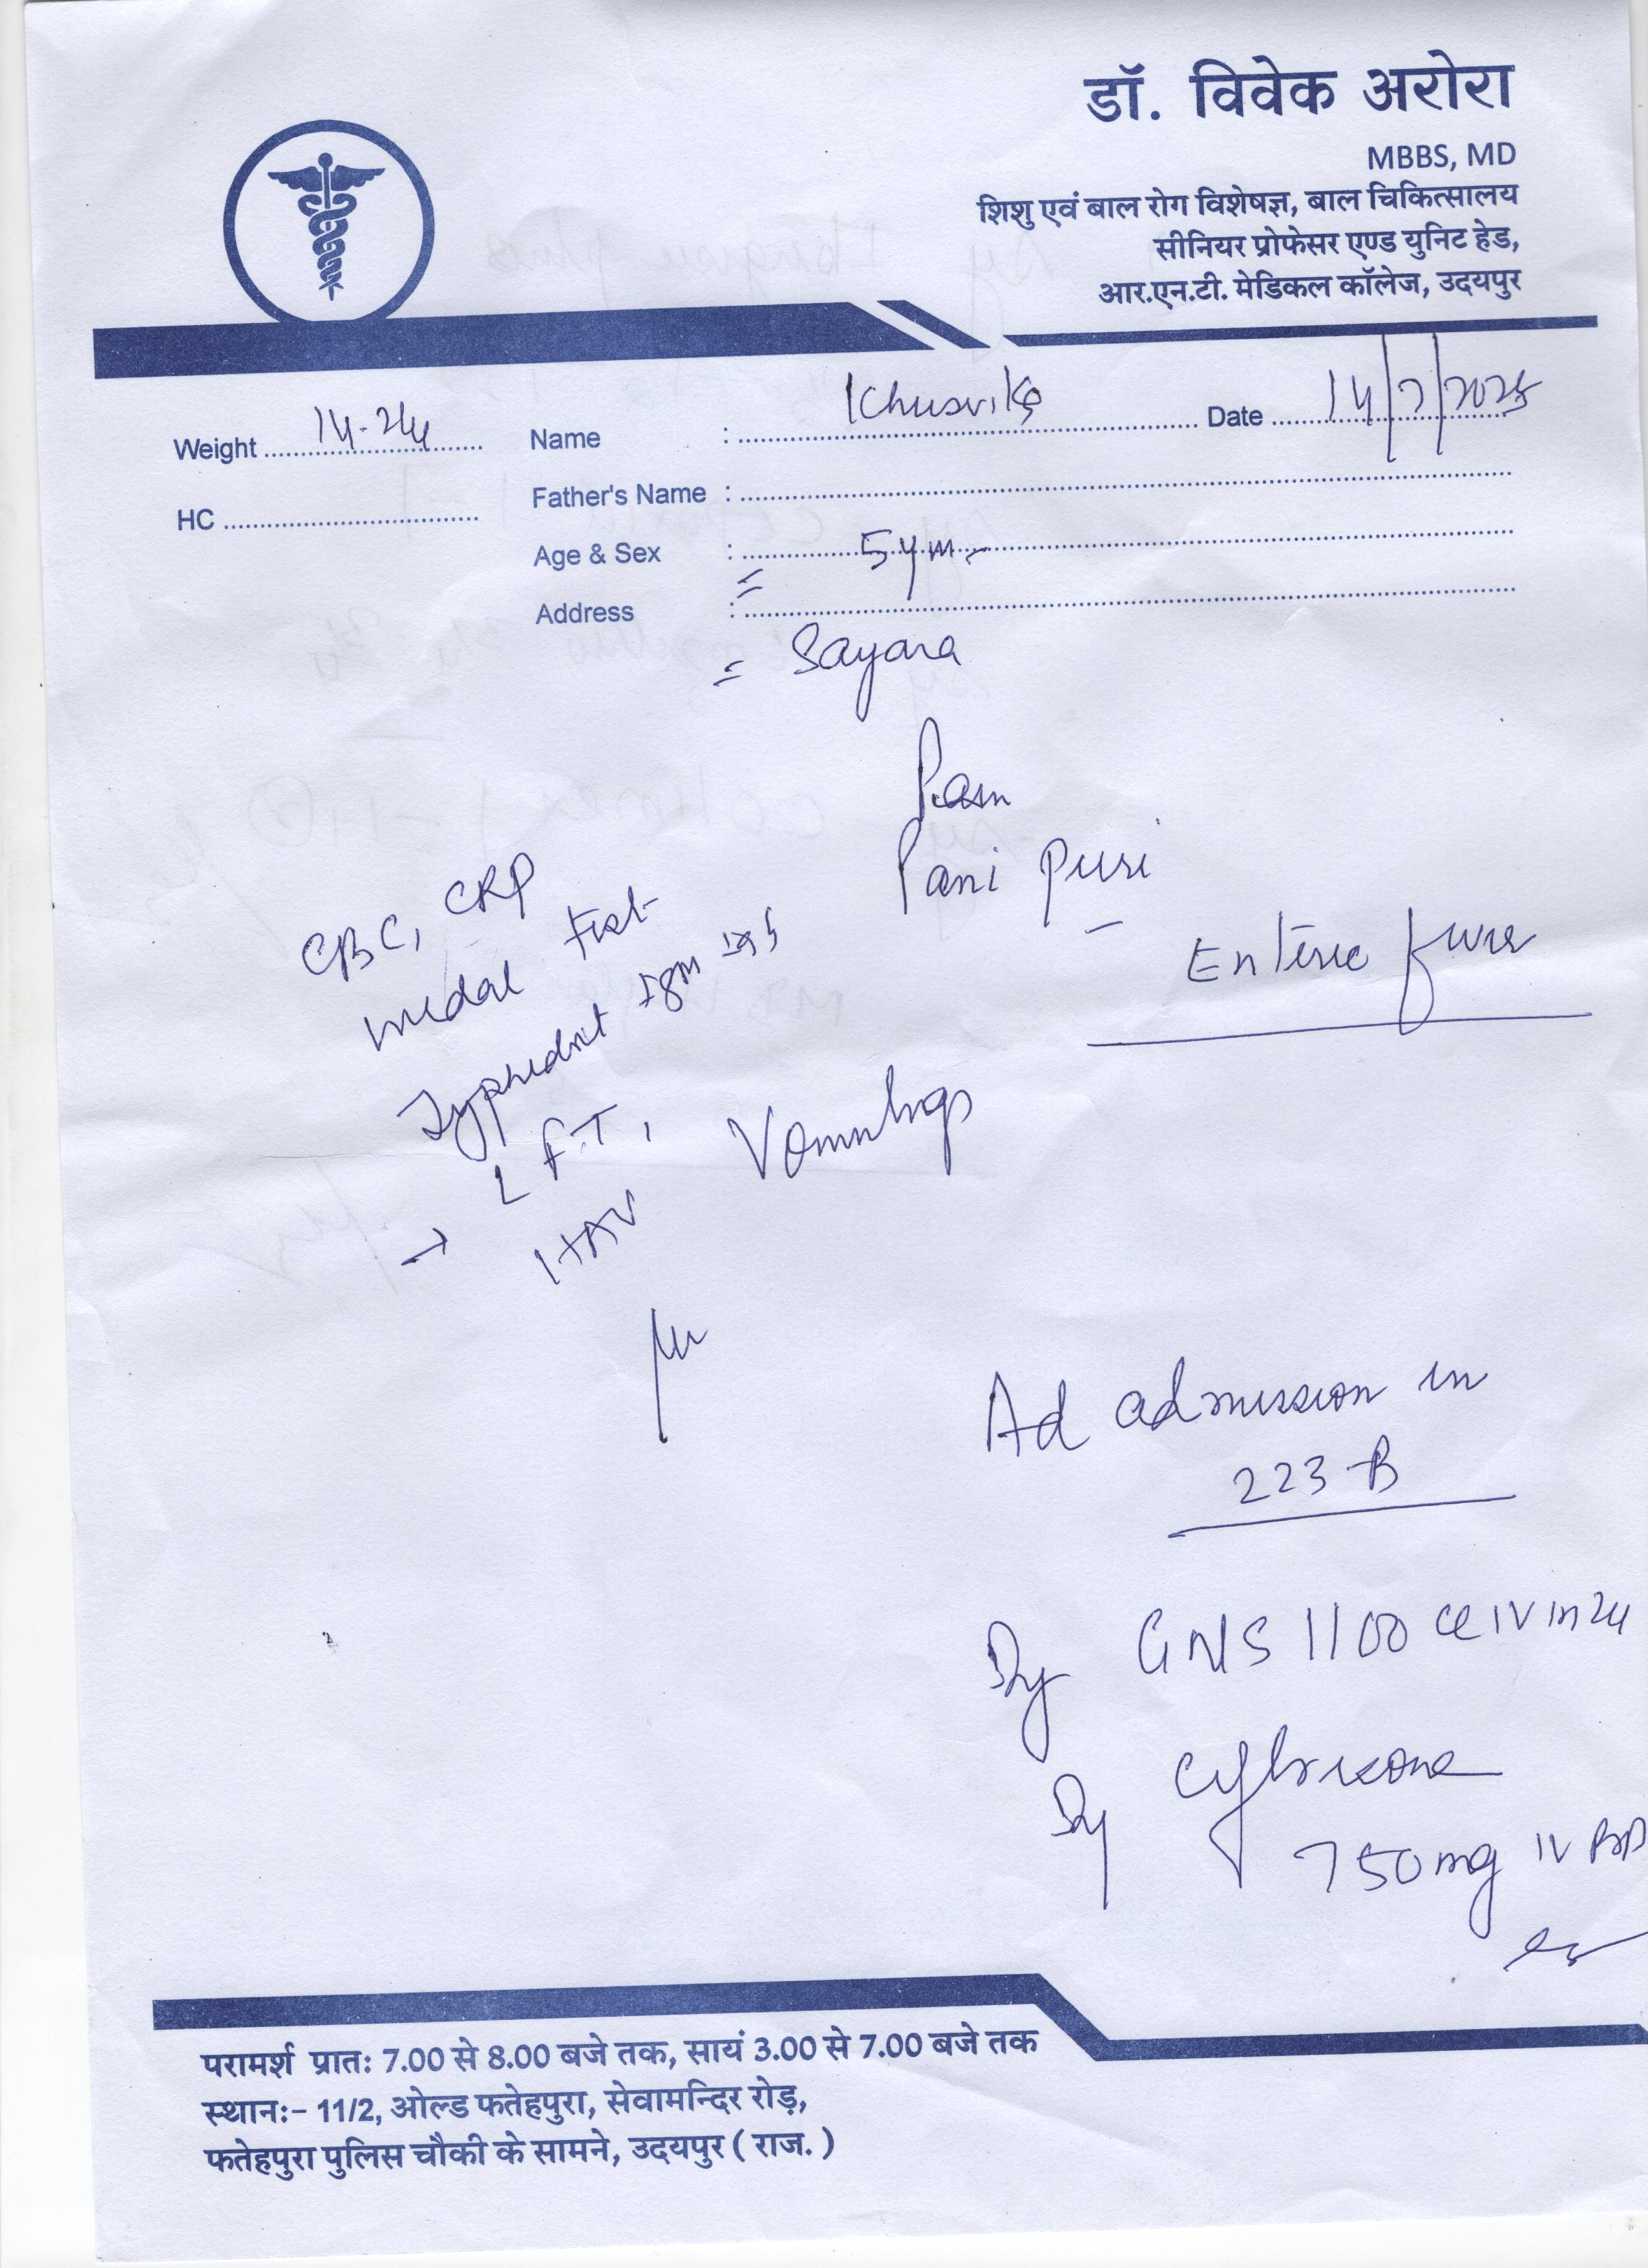 डॉ. विवेक अरोरा
MBBS, MD
शिशु एवं बाल रोग विशेषज्ञ, बाल चिकित्सालय
सीनियर प्रोफेसर एण्ड युनिट हेड,
आर.एन.टी. मेडिकल कॉलेज, उदयपुर
Weight
Name : Date 14/7/2025
HC
Father's Name :
Age & Sex : 5 y m
Address :
= Sayara
Pani Puri
CBC, CRP
Widal test
Enteric fever
Typhidot IgM IgG
→ LFT,
HAV
Vomitings
Ad admission in
223-B
GNS 1100 cc IV in 24
750 mg IV BD
परामर्श प्रातः 7.00 से 8.00 बजे तक, सायं 3.00 से 7.00 बजे तक
स्थानः- 11/2, ओल्ड फतेहपुरा, सेवामन्दिर रोड़,
फतेहपुरा पुलिस चौकी के सामने, उदयपुर ( राज. )